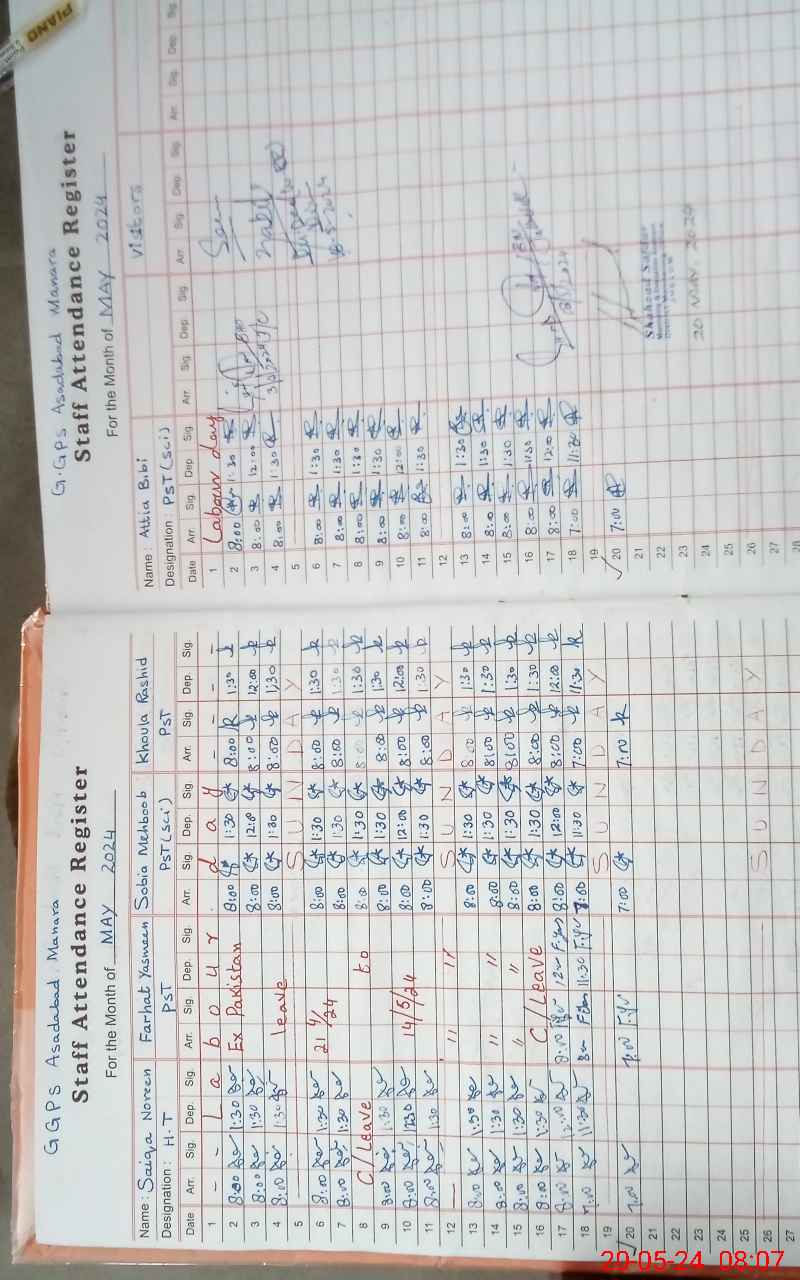 GGPS Asadabad Manara
Staff Attendance Register
For the Month of MAY 2024
Name: Saiqa Noreen Farhat Yasmeen Sobia Mehboob Khoula Rashid
Designation: H.T PST PST(sci) PST
Date Arr. Sig. Dep. Sig. Arr. Sig. Dep. Sig. Arr. Sig. Dep. Sig. Arr. Sig. Dep. Sig.
1 - - L a b o u r d a y - - - -
2 8:00 1:30 Ex Pakistan 8:00 1:30 8:00 1:30
3 8:00 1:30 8:00 12:00 8:00 12:00
4 8:00 1:30 leave 8:00 1:30 8:00 1:30
5 S U N D A Y
6 8:00 1:30 21 4/24 8:00 1:30 8:00 1:30
7 8:00 1:30 8:00 1:30 8:00 1:30
8 C/Leave to 8:00 1:30 8:00 1:30
9 8:00 1:30 8:00 1:30 8:00 1:30
10 8:00 12:30 14/5/24 8:00 12:00 8:00 12:00
11 8:00 1:30 8:00 1:30 8:00 1:30
12 — " " S U N D A Y
13 8:00 1:30 8:00 1:30 8:00 1:30
14 8:00 1:30 " " 8:00 1:30 8:00 1:30
15 8:00 1:30 " " 8:00 1:30 8:00 1:30
16 8:00 1:30 C/Leave 8:00 1:30 8:00 1:30
17 8:00 12:00 8:00 8:00 12:00 8:00 12:00
18 7:00 11:30 11:30 7:00 11:30 7:00 11:30
19 S U N D A Y
20 7:00 7:00 7:00 7:00
21
22
23
24
25
26 S U N D A Y
27
G.GPS Asadabad Manara
Staff Attendance Register
For the Month of MAY 2024
Name: Attia Bibi Visitors
Designation PST(sci)
Date Arr. Sig. Dep. Sig. Arr. Sig. Dep. Sig. Arr. Sig. Dep. Sig. Arr. Sig. Dep. Sig.
1 Labour day
2 8:00 1:30
3 8:00 12:00
4 8:00 1:30
5
6 8:00 1:30
7 8:00 1:30
8 8:00 1:30
9 8:00 1:30
10 8:00 12:00
11 8:00 1:30
12
13 8:00 1:30
14 8:00 1:30
15 8:00 1:30
16 8:00 1:30
17 8:00 12:00
18 7:00 11:30
19
20 7:00
21
22
23
24
25
26
27
28
20 MAY 2024
PIANO
20-05-24 08:07